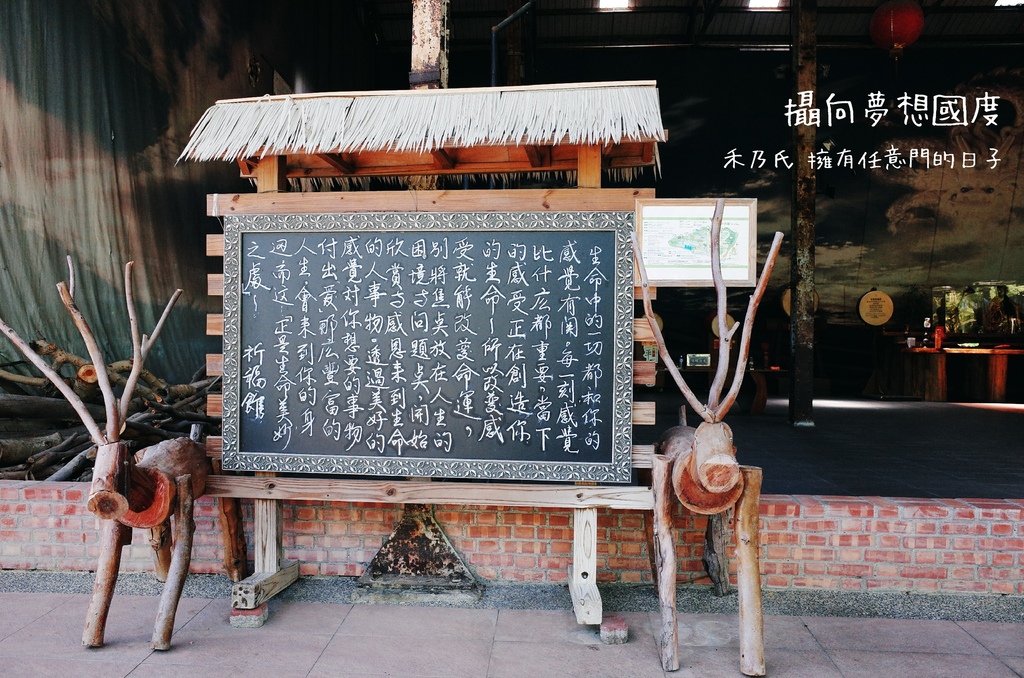 攝向夢想國度
禾乃氏 擁有任意門的日子
生命中的一切都和你的
感覺有關。每一刻感覺
比什庅都重要。當下
的感受正在創造你
的生命～所以改變感
受就能改變命運，
別將焦奌放在人生的
困境与問題奌，開始
欣賞与感恩来到生命
的人事物。透過美好的
感覺對你想要的事物
付出愛，那庅豐富的
人生，會来到你的身
边而這，正是生命美妙
之處～ 祈福館